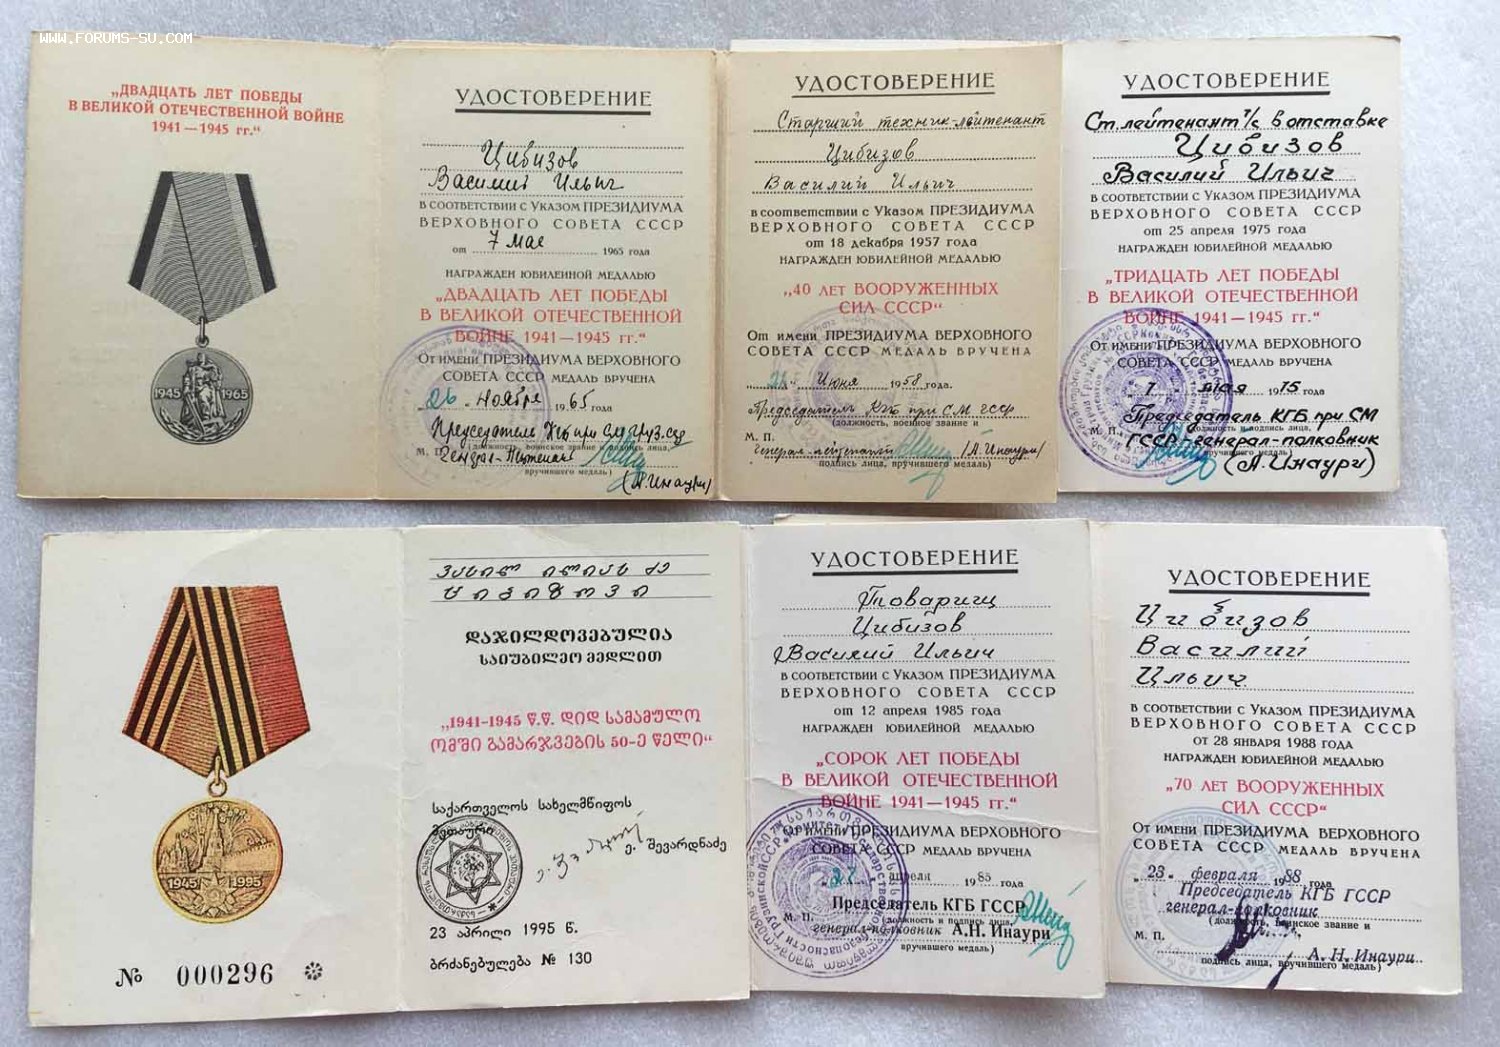 WWW.FORUMS-SU.COM
„ДВАДЦАТЬ ЛЕТ ПОБЕДЫ
В ВЕЛИКОЙ ОТЕЧЕСТВЕННОЙ ВОЙНЕ
1941—1945 гг.“
1945 1965
УДОСТОВЕРЕНИЕ
Цибизов
Василий Ильич
В СООТВЕТСТВИИ С УКАЗОМ ПРЕЗИДИУМА
ВЕРХОВНОГО СОВЕТА СССР
от 7 мая 1965 года
НАГРАЖДЕН ЮБИЛЕЙНОЙ МЕДАЛЬЮ
„ДВАДЦАТЬ ЛЕТ ПОБЕДЫ
В ВЕЛИКОЙ ОТЕЧЕСТВЕННОЙ
ВОЙНЕ 1941—1945 гг.“
От имени ПРЕЗИДИУМА ВЕРХОВНОГО
СОВЕТА СССР МЕДАЛЬ ВРУЧЕНА
„26“ ноября 1965 года
Председатель КГБ при
М. П.
Генерал-
вручившего медаль)
(А. Инаури)
УДОСТОВЕРЕНИЕ
Старший техник-лейтенант
Цибизов
Василий Ильич
В СООТВЕТСТВИИ С УКАЗОМ ПРЕЗИДИУМА
ВЕРХОВНОГО СОВЕТА СССР
от 18 декабря 1957 года
НАГРАЖДЕН ЮБИЛЕЙНОЙ МЕДАЛЬЮ
„40 ЛЕТ ВООРУЖЕННЫХ
СИЛ СССР“
От имени ПРЕЗИДИУМА ВЕРХОВНОГО
СОВЕТА СССР МЕДАЛЬ ВРУЧЕНА
июня 1958 года.
Председатель КГБ при СМ ГССР
(должность, военное звание и
М. П.
генерал-лейтенант (А. Инаури)
подпись лица, вручившего медаль)
УДОСТОВЕРЕНИЕ
Ст. лейтенант т/с в отставке
Цибизов
Василий Ильич
В СООТВЕТСТВИИ С УКАЗОМ ПРЕЗИДИУМА
ВЕРХОВНОГО СОВЕТА СССР
от 25 апреля 1975 года
НАГРАЖДЕН ЮБИЛЕЙНОЙ МЕДАЛЬЮ
„ТРИДЦАТЬ ЛЕТ ПОБЕДЫ
В ВЕЛИКОЙ ОТЕЧЕСТВЕННОЙ
ВОЙНЕ 1941—1945 гг.“
От имени ПРЕЗИДИУМА ВЕРХОВНОГО
СОВЕТА СССР МЕДАЛЬ ВРУЧЕНА
„7“ мая 1975 года
Председатель КГБ при СМ
М. П.
ГССР-генерал-полковник
(А. Инаури)
1945 1995
№ 000296
ვასილ ილიას ძე
ციბიზოვი
ᲓᲐᲯᲘᲚᲓᲝᲕᲔᲑᲣᲚᲘᲐ
ᲡᲐᲘᲣᲑᲘᲚᲔᲝ ᲛᲔᲓᲚᲘᲗ
„1941-1945 Წ.Წ. ᲓᲘᲓ ᲡᲐᲛᲐᲛᲣᲚᲝ
ᲝᲛᲨᲘ ᲒᲐᲛᲐᲠᲯᲕᲔᲑᲘᲡ 50-Ე ᲬᲔᲚᲘ“
საქართველოს სახელმწიფოს
მეთაური
ე. შევარდნაძე
23 აპრილი 1995 წ.
ბრძანებულება № 130
УДОСТОВЕРЕНИЕ
Товарищ
Цибизов
Василий Ильич
В СООТВЕТСТВИИ С УКАЗОМ ПРЕЗИДИУМА
ВЕРХОВНОГО СОВЕТА СССР
от 12 апреля 1985 года
НАГРАЖДЕН ЮБИЛЕЙНОЙ МЕДАЛЬЮ
„СОРОК ЛЕТ ПОБЕДЫ
В ВЕЛИКОЙ ОТЕЧЕСТВЕННОЙ
ВОЙНЕ 1941—1945 гг.“
От имени ПРЕЗИДИУМА ВЕРХОВНОГО
СОВЕТА СССР МЕДАЛЬ ВРУЧЕНА
„27“ апреля 1985 года
Председатель КГБ ГССР
М. П.
(должность и подпись лица,
генерал-полковник А.Н. Инаури
вручившего медаль)
УДОСТОВЕРЕНИЕ
Цибизов
Василий
Ильич
В СООТВЕТСТВИИ С УКАЗОМ ПРЕЗИДИУМА
ВЕРХОВНОГО СОВЕТА СССР
ОТ 28 ЯНВАРЯ 1988 ГОДА
НАГРАЖДЕН ЮБИЛЕЙНОЙ МЕДАЛЬЮ
„70 ЛЕТ ВООРУЖЕННЫХ
СИЛ СССР“
От имени ПРЕЗИДИУМА ВЕРХОВНОГО
СОВЕТА СССР МЕДАЛЬ ВРУЧЕНА
„23“ февраля 1988 года
Председатель КГБ ГССР
генерал-полковник
(должность, воинское звание и
М. П.
А. Н. Инаури
подпись лица, вручившего медаль)